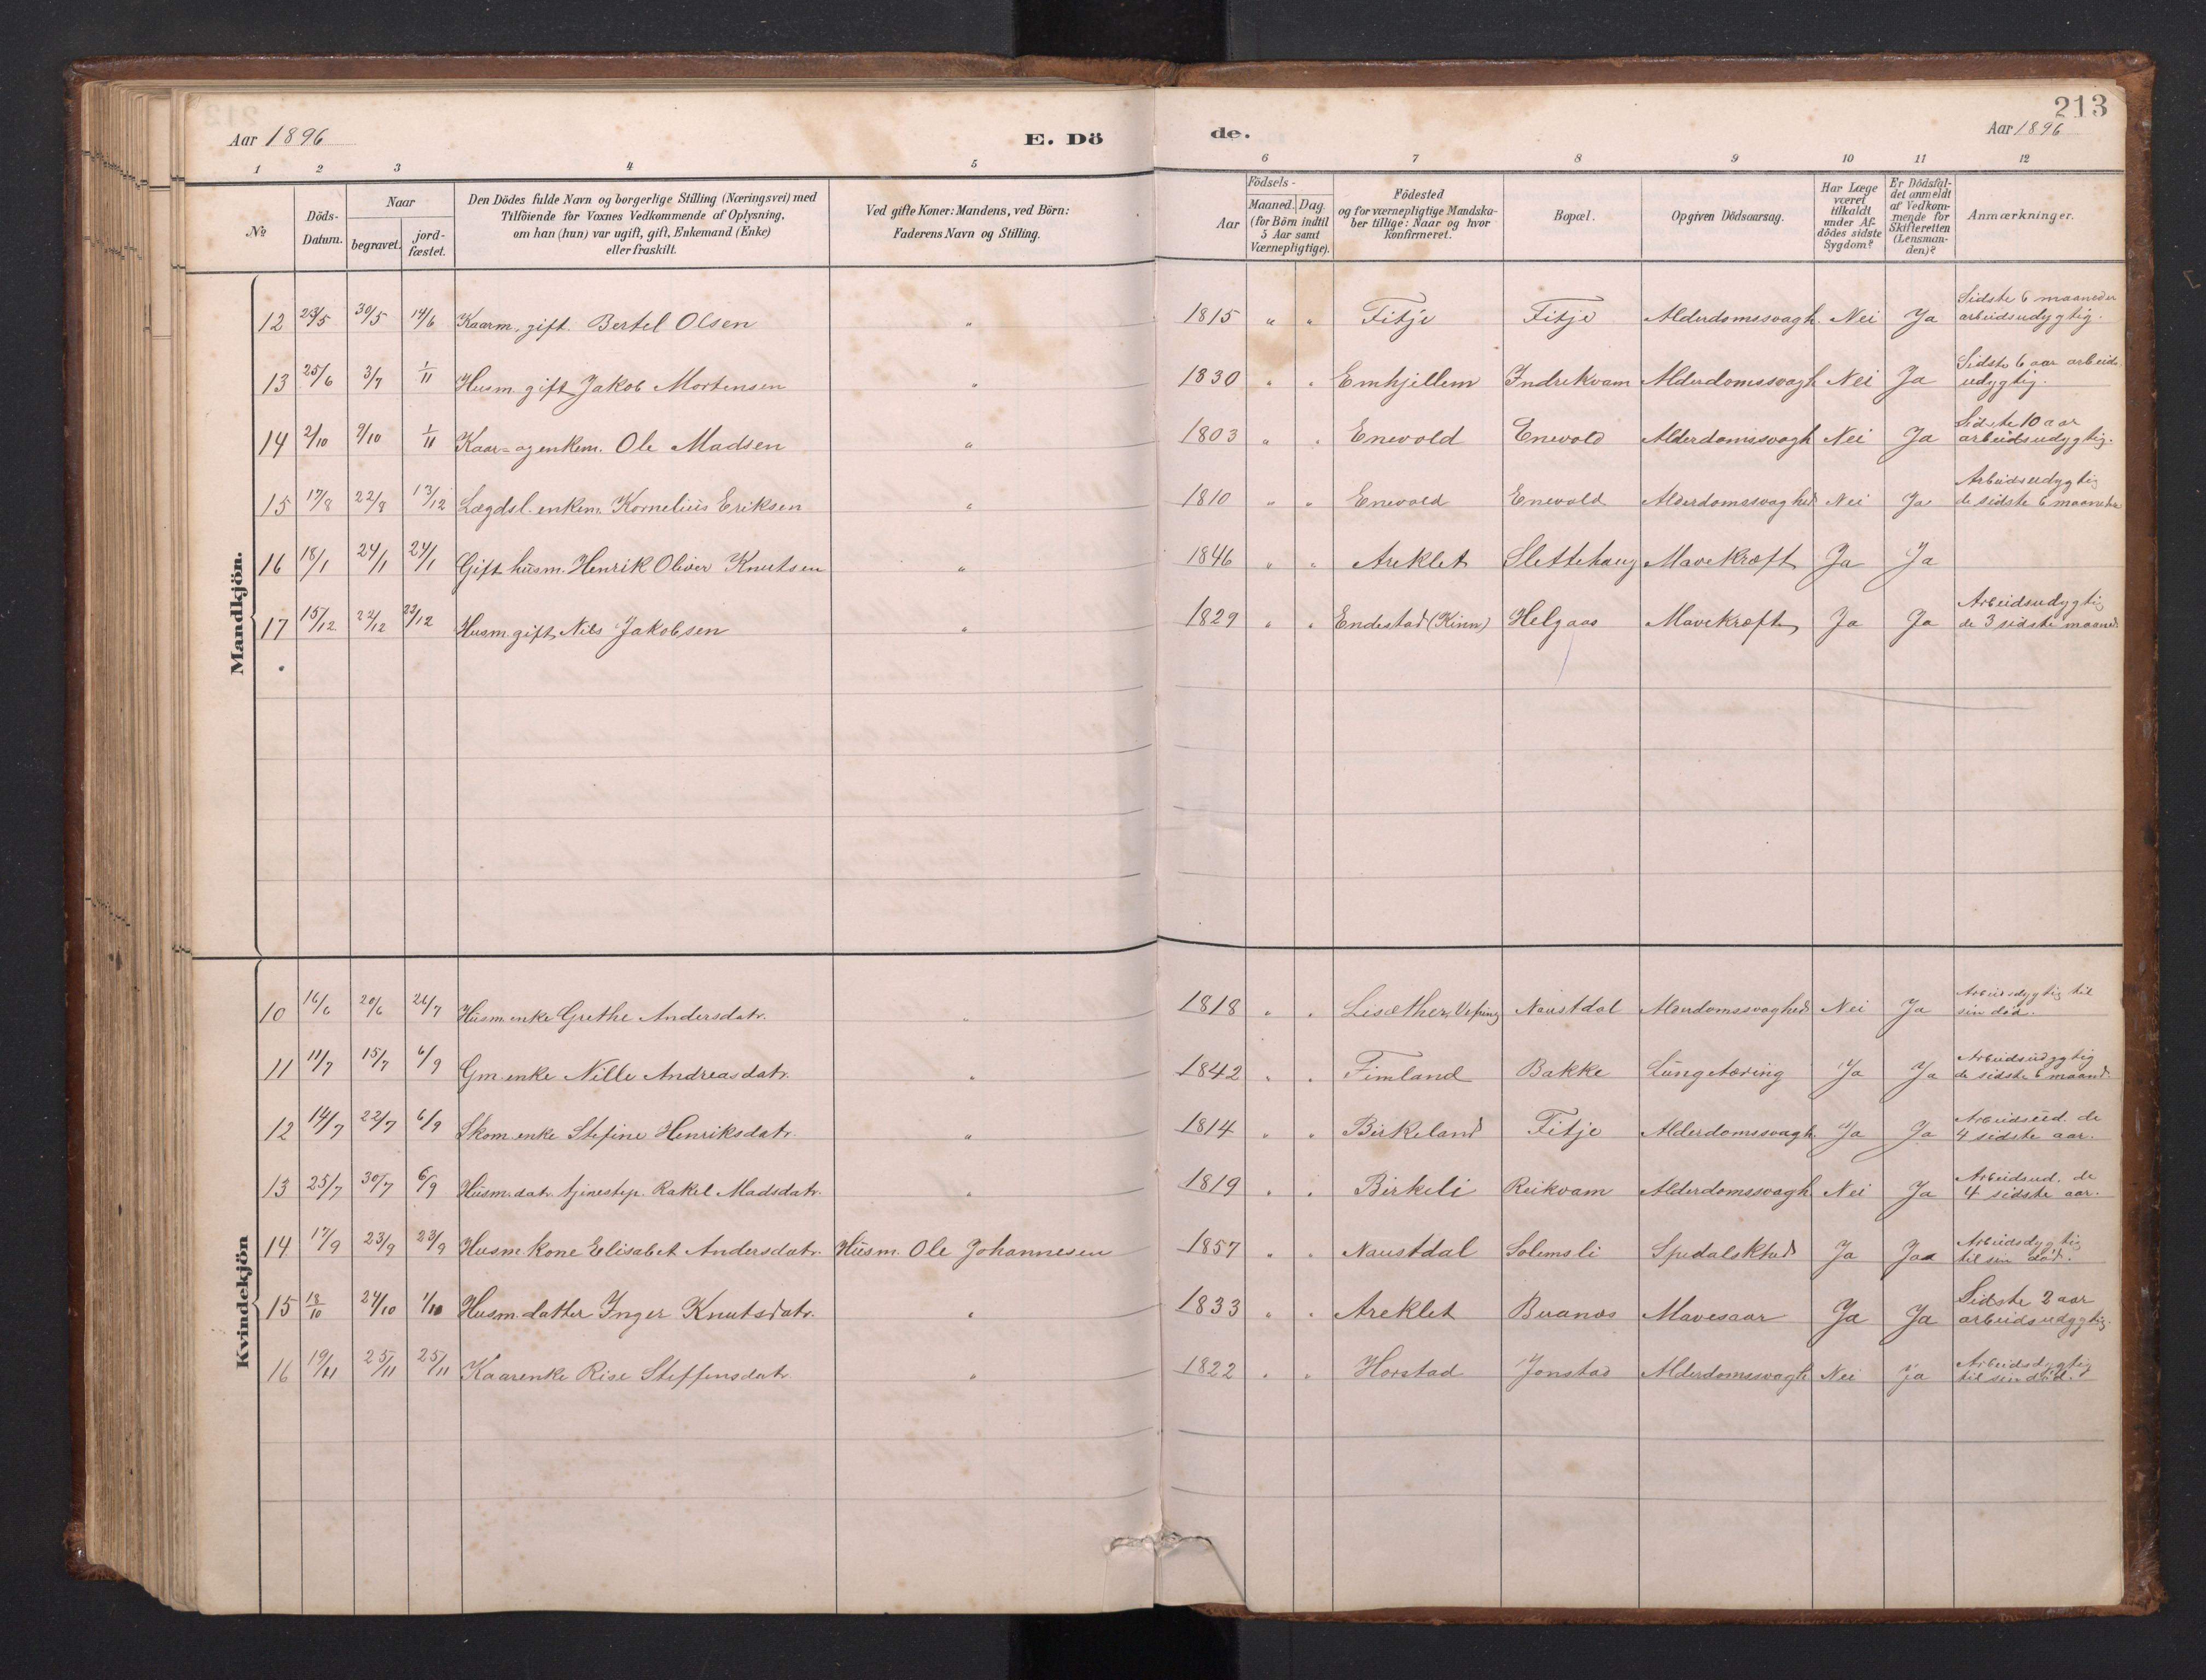 213
Aar 1896 E. Dö de. Aar 1896
1 2 3 4 5 6 7 8 9 10 11 12
№
Döds-Datum.
Naar
begravet.
jord-fæstet.
Den Dödes fulde Navn og borgerlige Stilling (Næringsvei) med
Tilföiende for Voxnes Vedkommende af Oplysning,
om han (hun) var ugift, gift, Enkemand (Enke)
eller fraskilt.
Ved gifte Koner: Mandens, ved Börn:
Faderens Navn og Stilling.
Födsels-
Aar
Maaned. Dag.
(for Börn indtil
5 Aar samt
Værnepligtige).
Födested
og for værnepligtige Mandska-
ber tillige: Naar og hvor
konfirmeret.
Bopæl.
Opgiven Dödsaarsag.
Har Læge
været
tilkaldt
under Af-
dödes sidste
Sygdom?
Er Dödsfal-
det anmeldt
af Vedkom-
mende for
Skifteretten
(Lensman-
den)?
Anmærkninger.
Mandkjön.
12 23/5 30/5 14/6 Kaarm. gift. Bertel Olsen " 1815 " " Fitje Fitje Alderdomssvagh. Nei Ja Sidste 6 maaneder arbeidsudygtig.
13 25/6 3/7 1/11 Husm. gift Jakob Mortensen " 1830 " " Emhjellem Indrekvam Alderdomssvagh Nei Ja Sidste 6 aar arbeids udygtig.
14 2/10 9/10 1/11 Kaar- og enkem. Ole Madsen " 1803 " " Enevold Enevold Alderdomssvagh Nei Ja Sidste 10 aar arbeidsudygtig.
15 17/8 22/8 13/12 Lægdsl. enkem. Kornelius Eriksen " 1810 " " Enevold Enevold Alderdomssvaghed Nei Ja Arbeidsudygtig de sidste 6 maaneder
16 18/1 24/1 24/1 Gift husm. Henrik Oliver Knutsen " 1846 " " Areklet Slettehaug Mavekræft Ja Ja
17 15/12 22/12 22/12 Husm. gift Nils Jakobsen " 1829 " " Endestad (Kinn) Helgaas Mavekræft Ja Ja Arbeidsudygtig de 3 sidste maaned
Kvindekjön
10 16/6 20/6 26/7 Husm. enke Grethe Andersdatr. " 1818 " " Naustdal Alderdomssvaghed Nei Ja Arbeidsdygtig til sin död.
11 11/7 15/7 6/9 Gm. enke Nille Andreasdatr. " 1842 " " Fimland Bakke Lungetæring Ja Ja Arbeidsudygtig de sidste 6 maaned.
12 14/7 22/7 6/9 Skom. enke Stefine Henriksdatr. " 1814 " " Birkeland Fitje Alderdomssvagh Ja Ja Arbeidsud. de 4 sidste aar.
13 25/7 30/7 6/9 Husm. datr. tjenestep. Rakel Madsdatr. " 1819 " " Birkeli Reikvam Alderdomssvagh Nei Ja Arbeidsud. de 4 sidste aar.
14 17/9 23/9 23/9 Husm. kone Elisabet Andersdatr. Husm. Ole Johannesen 1857 " " Naustdal Solemsli Spedalskhed Ja Ja Arbeidsdygtig til sin död.
15 18/10 24/10 1/10 Husm. datter Inger Knutsdatr. " 1833 " " Areklet Buanæs Mavesaar Ja Ja Sidste 2 aar arbeidsudygtig.
16 19/11 25/11 25/11 Kaarenke Rise Steffensdatr. " 1822 " " Horstad Jonstad Alderdomssvagh Nei Ja Arbeidsdygtig til sin död.